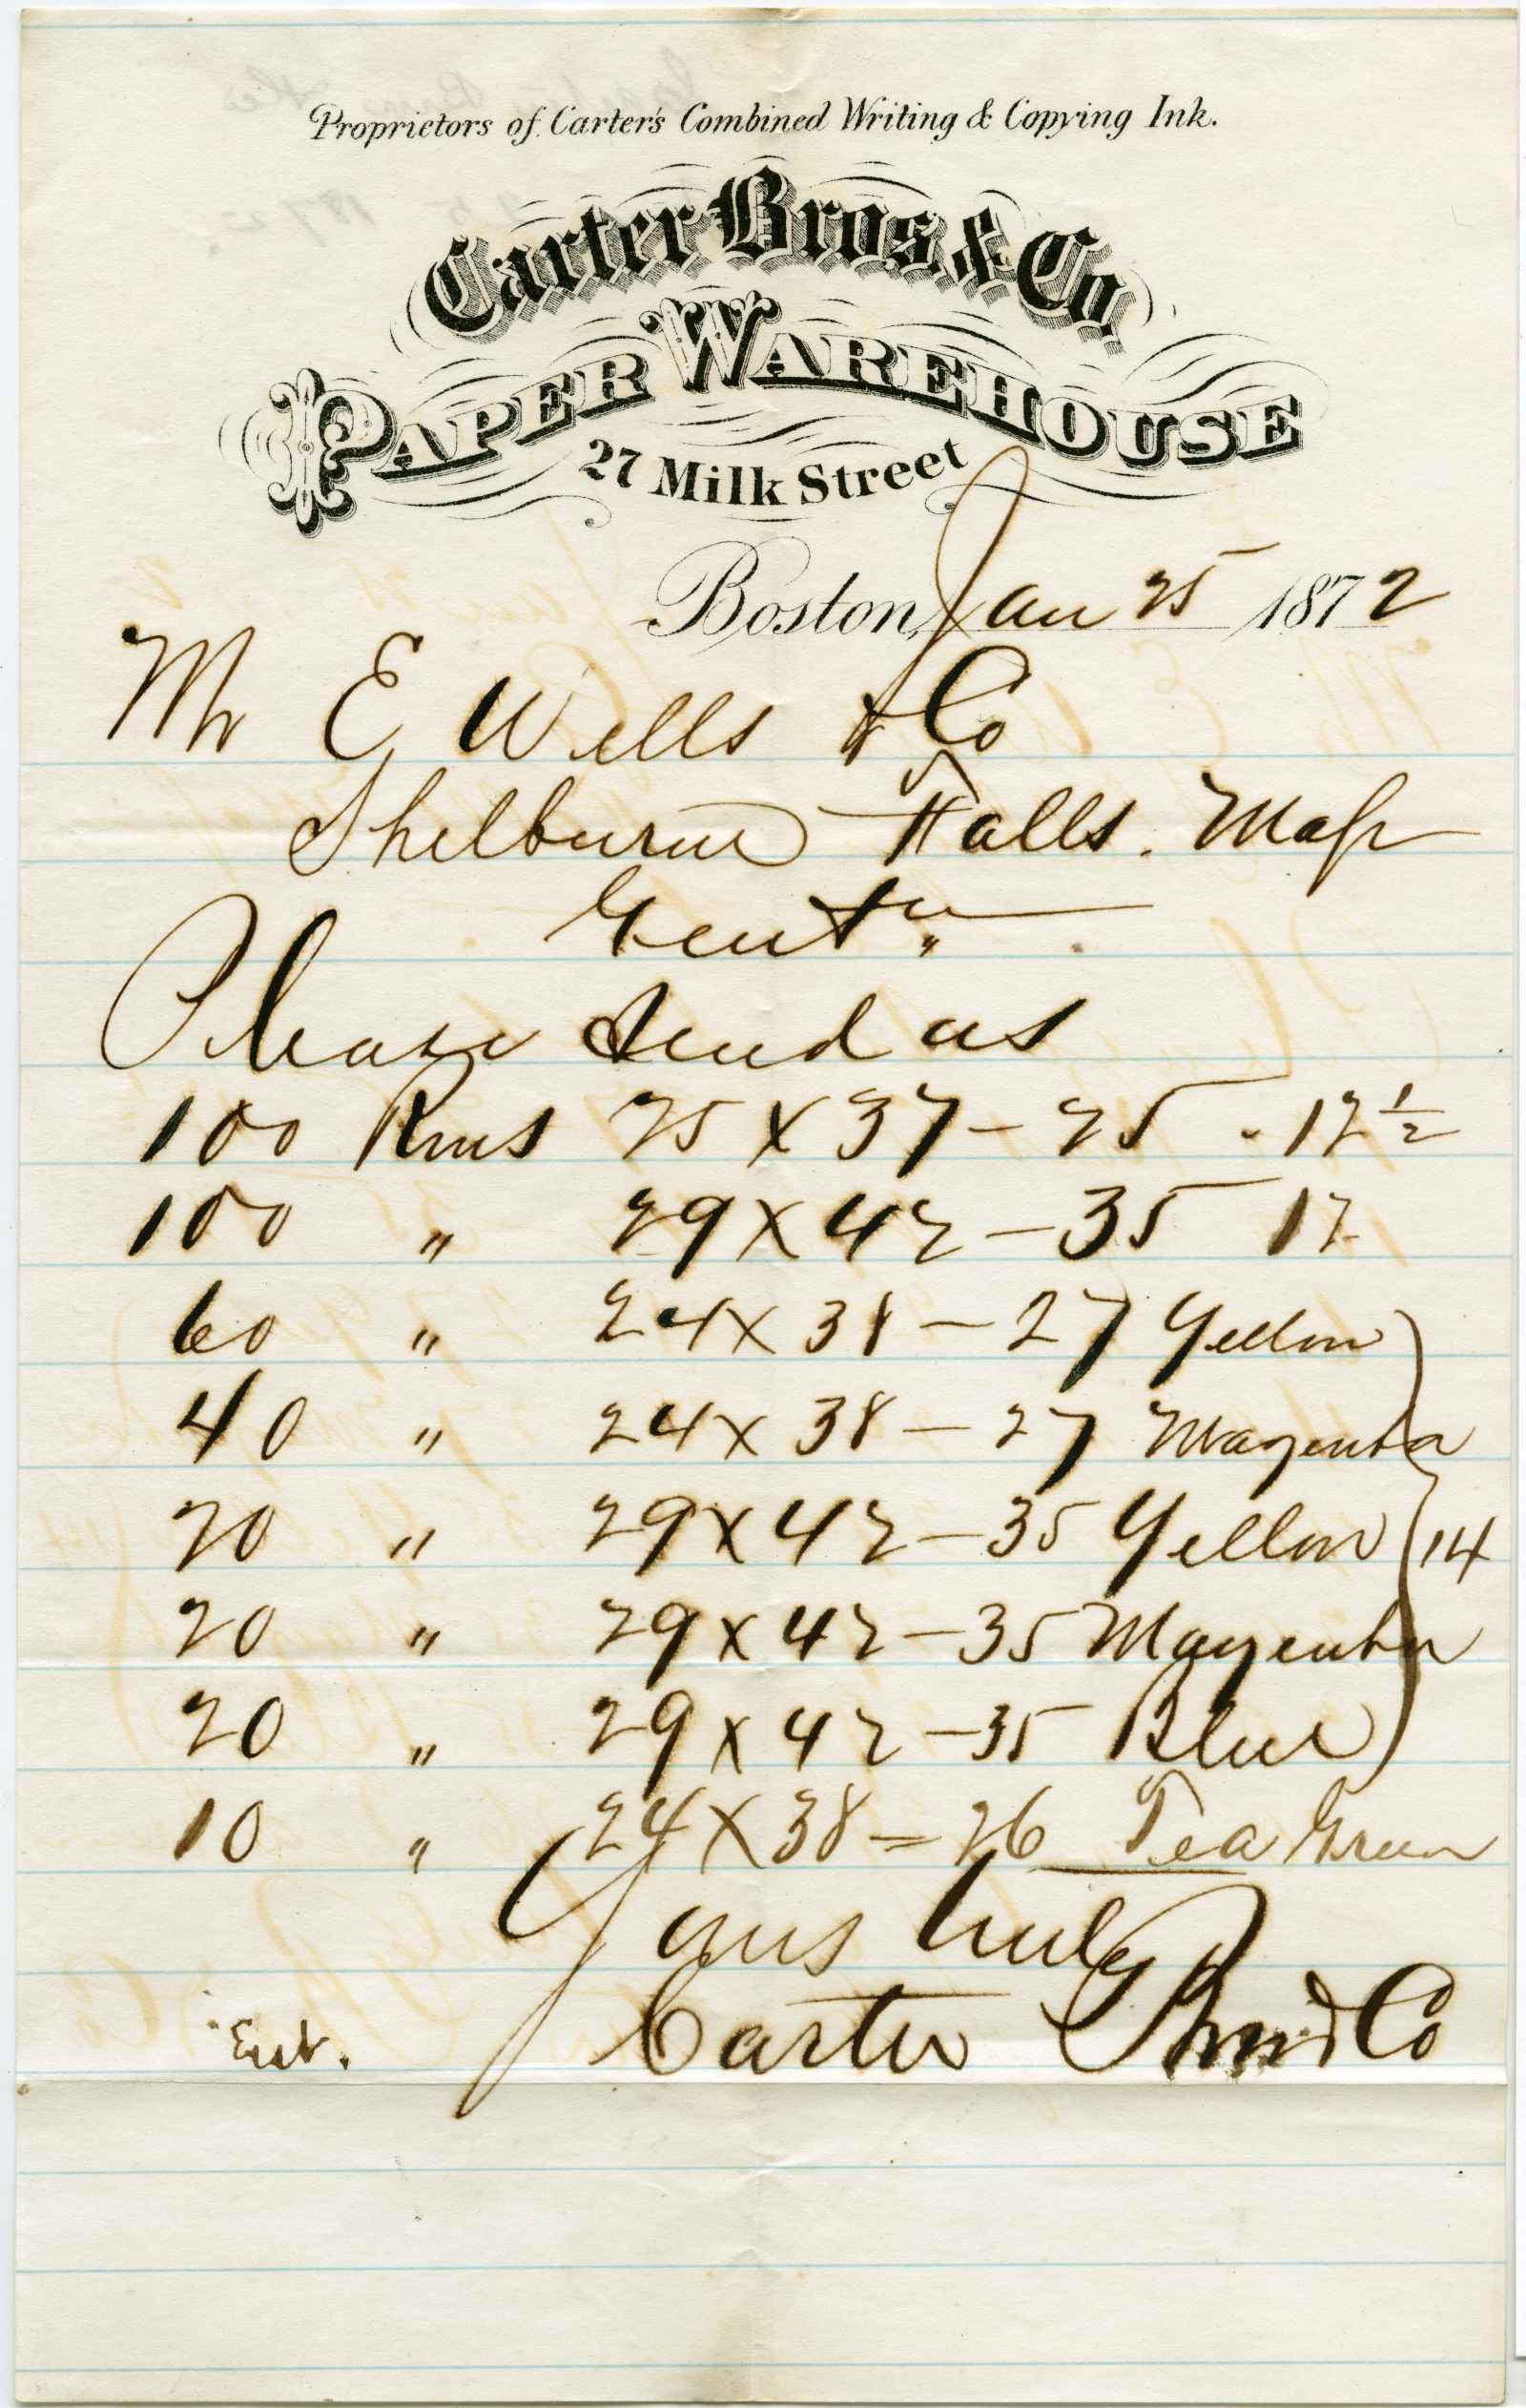 Proprietors of Carter's Combined Writing & Copying Ink.
Carter Bros. & Co.
PAPER WAREHOUSE
27 Milk Street
Boston, Jan 25 1872
Mr E Wells & Co
Shelburne Falls. Mass
Gentn
Please send us
100 Rms 25 x 37 – 25 - 12 1/2
100 " 29 x 42 – 35 12
60 " 24 x 38 – 27 Yellow
40 " 24 x 38 – 27 Magenta
20 " 29 x 42 – 35 Yellow 14
20 " 29 x 42 – 35 Magenta
20 " 29 x 42 – 35 Blue
10 " 24 x 38 = 26 Tea Green
Yours truly
Carter Bros & Co
Ent.